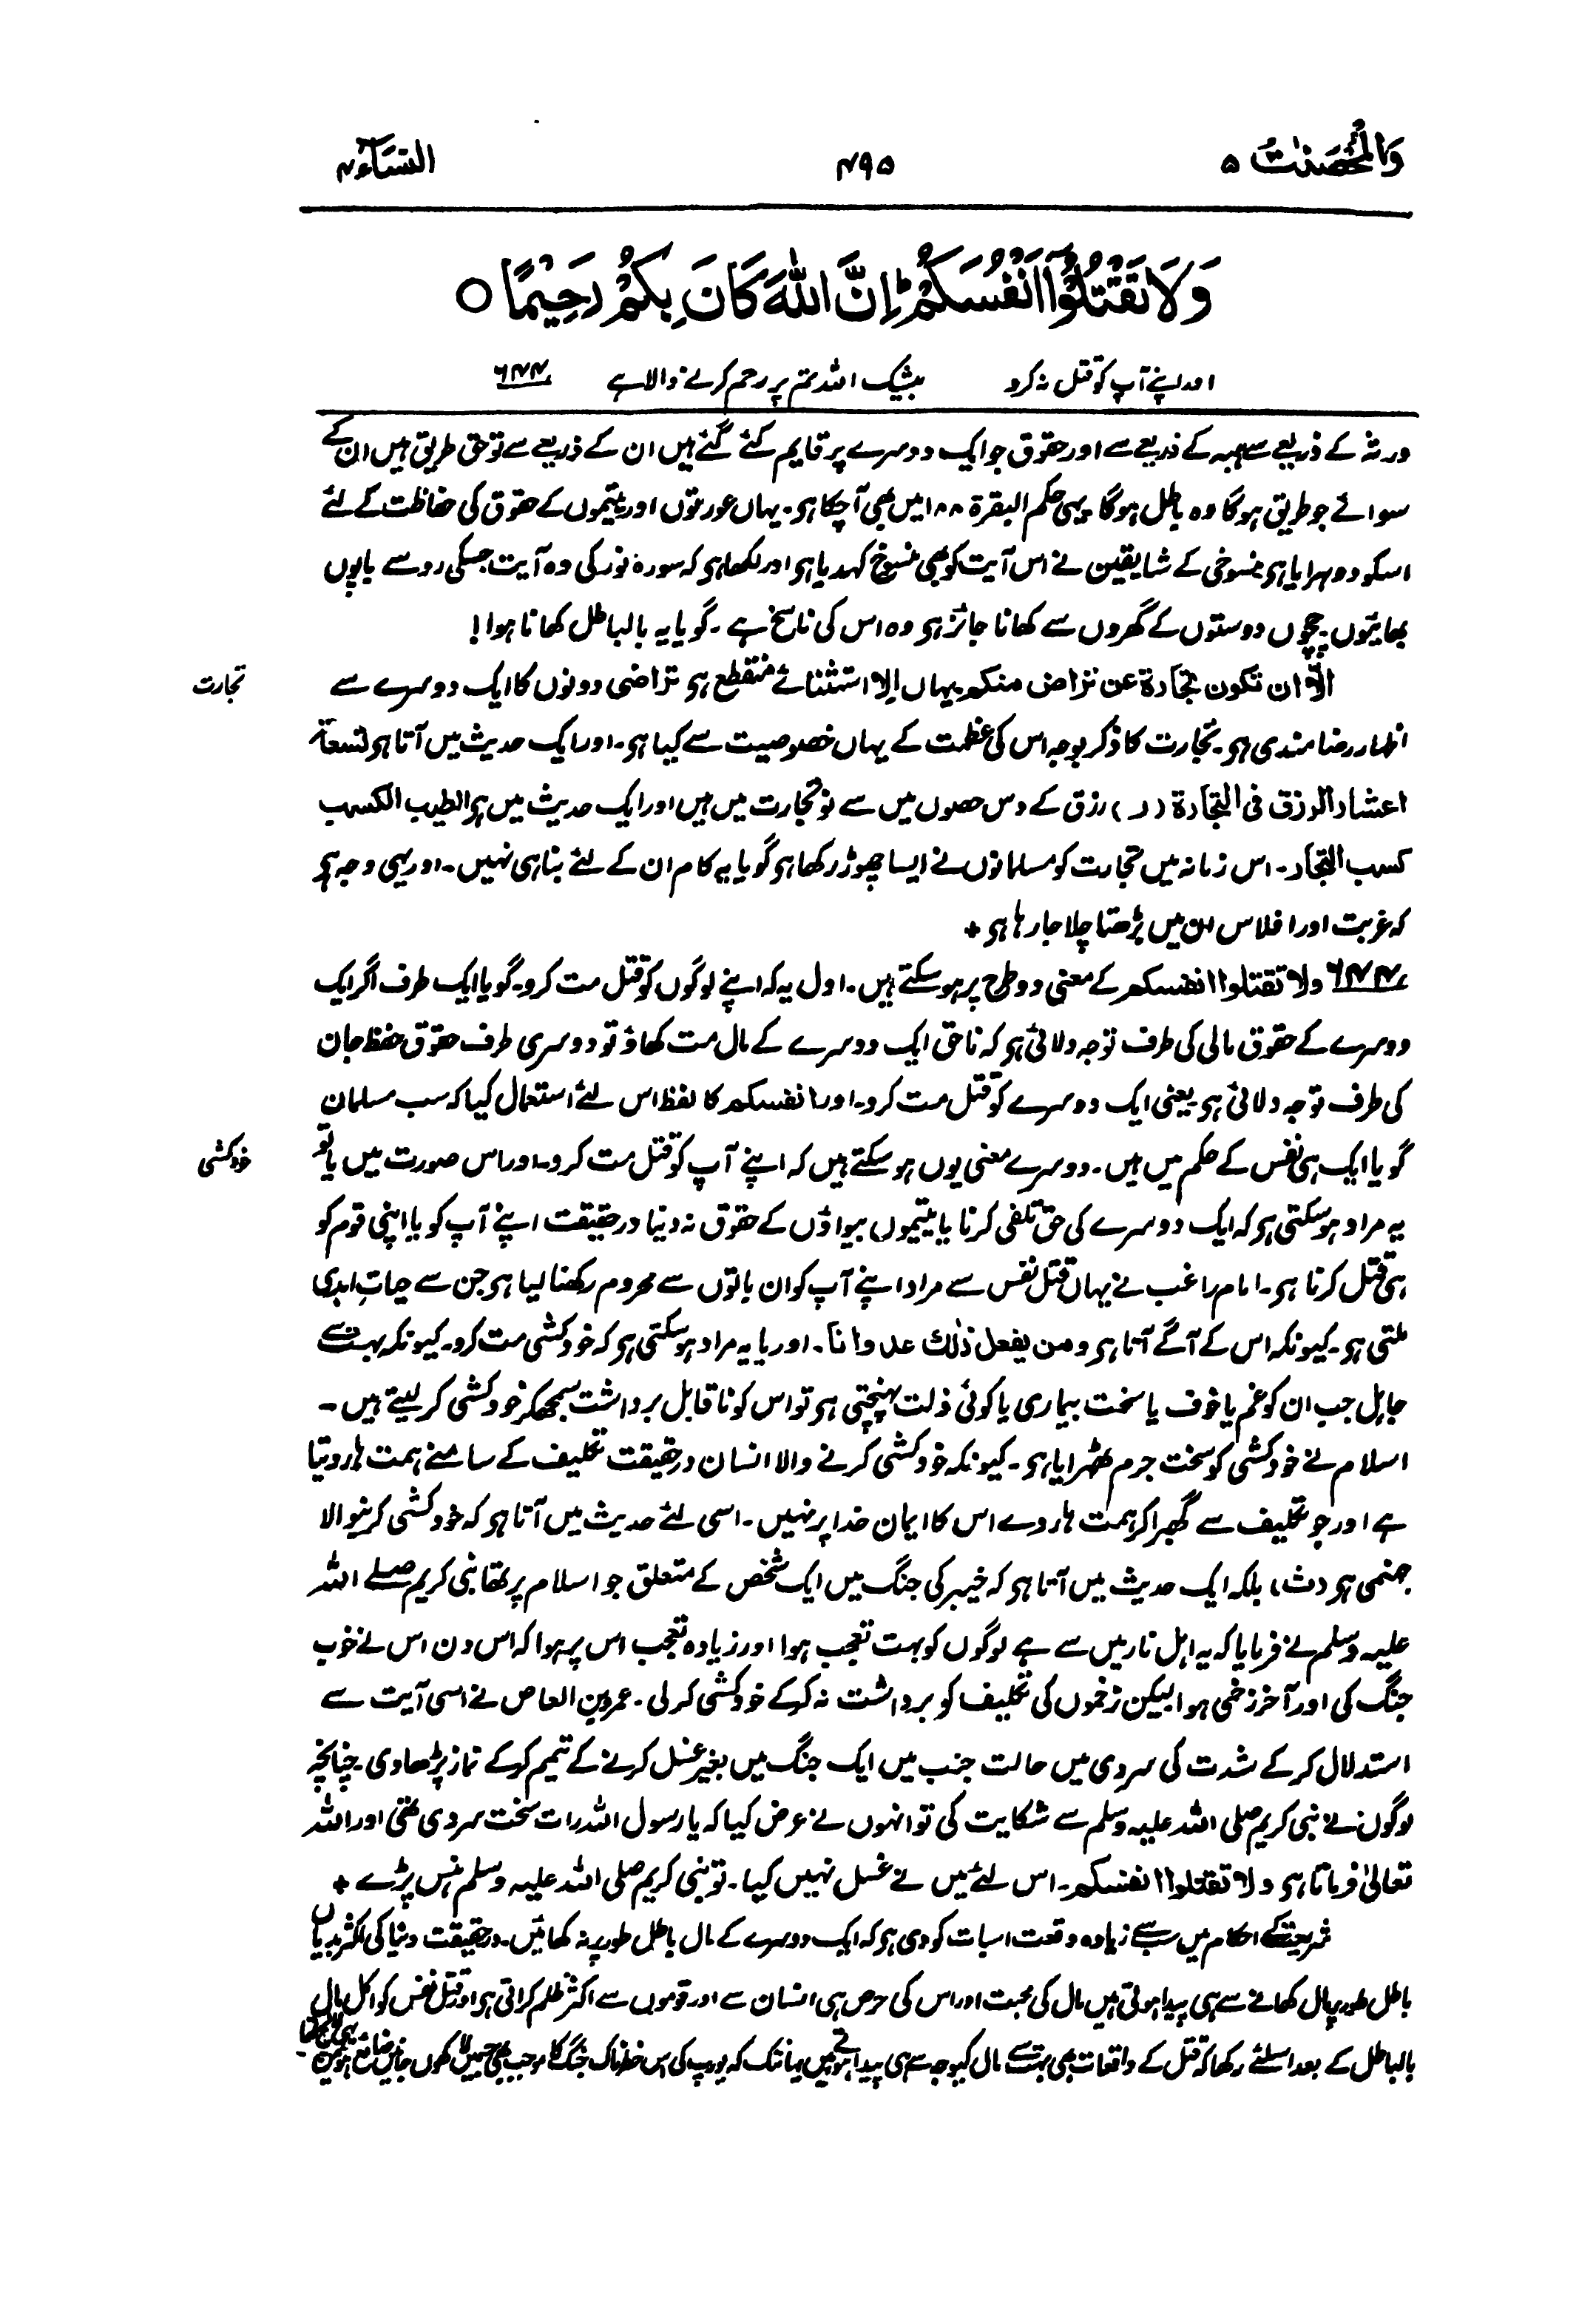 وَالْمُحْصَنٰتُ ۵
۴۹۵
النِّسَآء ۴
وَلَا تَقْتُلُوْٓا اَنْفُسَكُمْ ؕ اِنَّ اللّٰهَ كَانَ بِكُمْ رَحِيْمًا ○
اور اپنے آپ کو قتل نہ کرو بیشک اللہ تم پر رحم کرنے والا ہے ۶۴۴
ورثہ کے ذریعے سے ہبہ کے ذریعے سے اور حقوق جو ایک دوسرے پر قایم کئے گئے ہیں ان کے ذریعے سے تو حق طریق ہیں ان کے
سوائے جو طریق ہوگا وہ باطل ہوگا یہی حکم البقرۃ ۱۸۸ میں بھی آچکا ہو۔ یہاں عورتوں اور یتیموں کے حقوق کی حفاظت کے لئے
اسکو دوہرایا ہو منسوخی کے شایقین نے اس آیت کو بھی منسوخ کہدیا ہو اور لکھا ہو کہ سورۂ نور کی وہ آیت جسکی رو سے باپوں
بھایئوں۔ چچوں دوستوں کے گھروں سے کھانا جائز ہو وہ اس کی ناسخ ہے۔ گویا یہ بالباطل کھانا ہوا!
الّا ان تکون تجارۃ عن تراض منکم۔ یہاں اِلا استثنائے منقطع ہو تراضی دونوں کا ایک دوسرے سے
تجارت
اظہار رضامندی ہو۔ تجارت کا ذکر بوجہ اس کی عظمت کے یہاں خصوصیت سے کیا ہو۔ اور ایک حدیث میں آتا ہو تسعۃ
اعشار الرزق فی التجارۃ (ر) رزق کے دس حصوں میں سے نو تجارت میں ہیں اور ایک حدیث میں ہو الطیب الکسب
کسب التجار۔ اس زمانہ میں تجارت کو مسلمانوں نے ایسا چھوڑ رکھا ہو گویا یہ کام ان کے لئے بنا ہی نہیں۔ اور یہی وجہ ہو
کہ غربت اور افلاس ان میں بڑھتا چلا جا رہا ہو +
۶۴۴ ولا تقتلوا انفسکم کے معنی دو طرح پر ہو سکتے ہیں۔ اول یہ کہ اپنے لوگوں کو قتل مت کرو۔ گویا ایک طرف اگر ایک
دوسرے کے حقوق مالی کی طرف توجہ دلائی ہو کہ ناحق ایک دوسرے کے مال مت کھاؤ تو دوسری طرف حقوق حفظ جان
کی طرف توجہ دلائی ہو یعنی ایک دوسرے کو قتل مت کرو۔ اور انفسکم کا لفظ اس لئے استعمال کیا کہ سب مسلمان
گویا ایک ہی نفس کے حکم میں ہیں۔ دوسرے معنی یوں ہو سکتے ہیں کہ اپنے آپ کو قتل مت کرو۔ اور اس صورت میں یا تو
خودکشی
یہ مراد ہو سکتی ہو کہ ایک دوسرے کی حق تلفی کرنا یا یتیموں بیواؤں کے حقوق نہ دینا درحقیقت اپنے آپ کو یا اپنی قوم کو
ہی قتل کرنا ہو۔ امام راغب نے یہاں قتل نفس سے مراد اپنے آپ کو ان باتوں سے محروم رکھنا لیا ہو جن سے حیات ابدی
ملتی ہو۔ کیونکہ اس کے آگے آتا ہو ومن یفعل ذٰلک عدوانا۔ اور یا یہ مراد ہو سکتی ہو کہ خودکشی مت کرو۔ کیونکہ بہت سے
جاہل جب ان کو غم یا خوف یا سخت بیماری یا کوئی ذلت پہنچتی ہو تو اس کو ناقابل برداشت سمجھکر خودکشی کر لیتے ہیں۔
اسلام نے خودکشی کو سخت جرم ٹھہرایا ہو۔ کیونکہ خودکشی کرنے والا انسان درحقیقت تکلیف کے سامنے ہمت ہار دیتا
ہے اور جو تکلیف سے گھبرا کر ہمت ہار دے اس کا ایمان خدا پر نہیں۔ اسی لئے حدیث میں آتا ہو کہ خودکشی کرنیوالا
جہنمی ہو (ث) بلکہ ایک حدیث میں آتا ہو کہ خیبر کی جنگ میں ایک شخص کے متعلق جو اسلام پر تھا نبی کریم صلے اللہ
علیہ وسلم نے فرمایا کہ یہ اہل نار میں سے ہے لوگوں کو بہت تعجب ہوا اور زیادہ تعجب اس پر ہوا کہ اس دن اس نے خوب
جنگ کی اور آخر زخمی ہوا لیکن زخموں کی تکلیف کو برداشت نہ کرکے خودکشی کر لی۔ عمرو بن العاص نے اسی آیت سے
استدلال کر کے شدت کی سردی میں حالت جنب میں ایک جنگ میں بغیر غسل کرنے کے تیمم کرکے نماز پڑھا دی۔ چنانچہ
لوگوں نے نبی کریم صلی اللہ علیہ وسلم سے شکایت کی تو انہوں نے عرض کیا کہ یا رسول اللہ رات سخت سردی تھی اور اللہ
تعالیٰ فرماتا ہو ولا تقتلوا انفسکم۔ اس لئے میں نے غسل نہیں کیا۔ تو نبی کریم صلی اللہ علیہ وسلم ہنس پڑے +
شریعت کے احکام میں سب سے زیادہ وقعت اسبات کو دی ہو کہ ایک دوسرے کے مال باطل طور پر نہ کھائیں۔ درحقیقت دنیا کی اکثر بدیاں
باطل طور پر مال کھانے سے ہی پیدا ہوتی ہیں مال کی محبت اور اس کی حرص ہی انسان سے اور قوموں سے اکثر ظلم کراتی ہو اور قتل نفس کو اکل مال
بالباطل کے بعد اسلئے رکھا کہ قتل کے واقعات بھی بہت سے مال کیوجہ سے ہی پیدا ہوتے ہیں یہانتک کہ یورپ کی اس خطرناک جنگ کا موجب بھی جسمیں لاکھوں جانیں ضائع ہوئیں